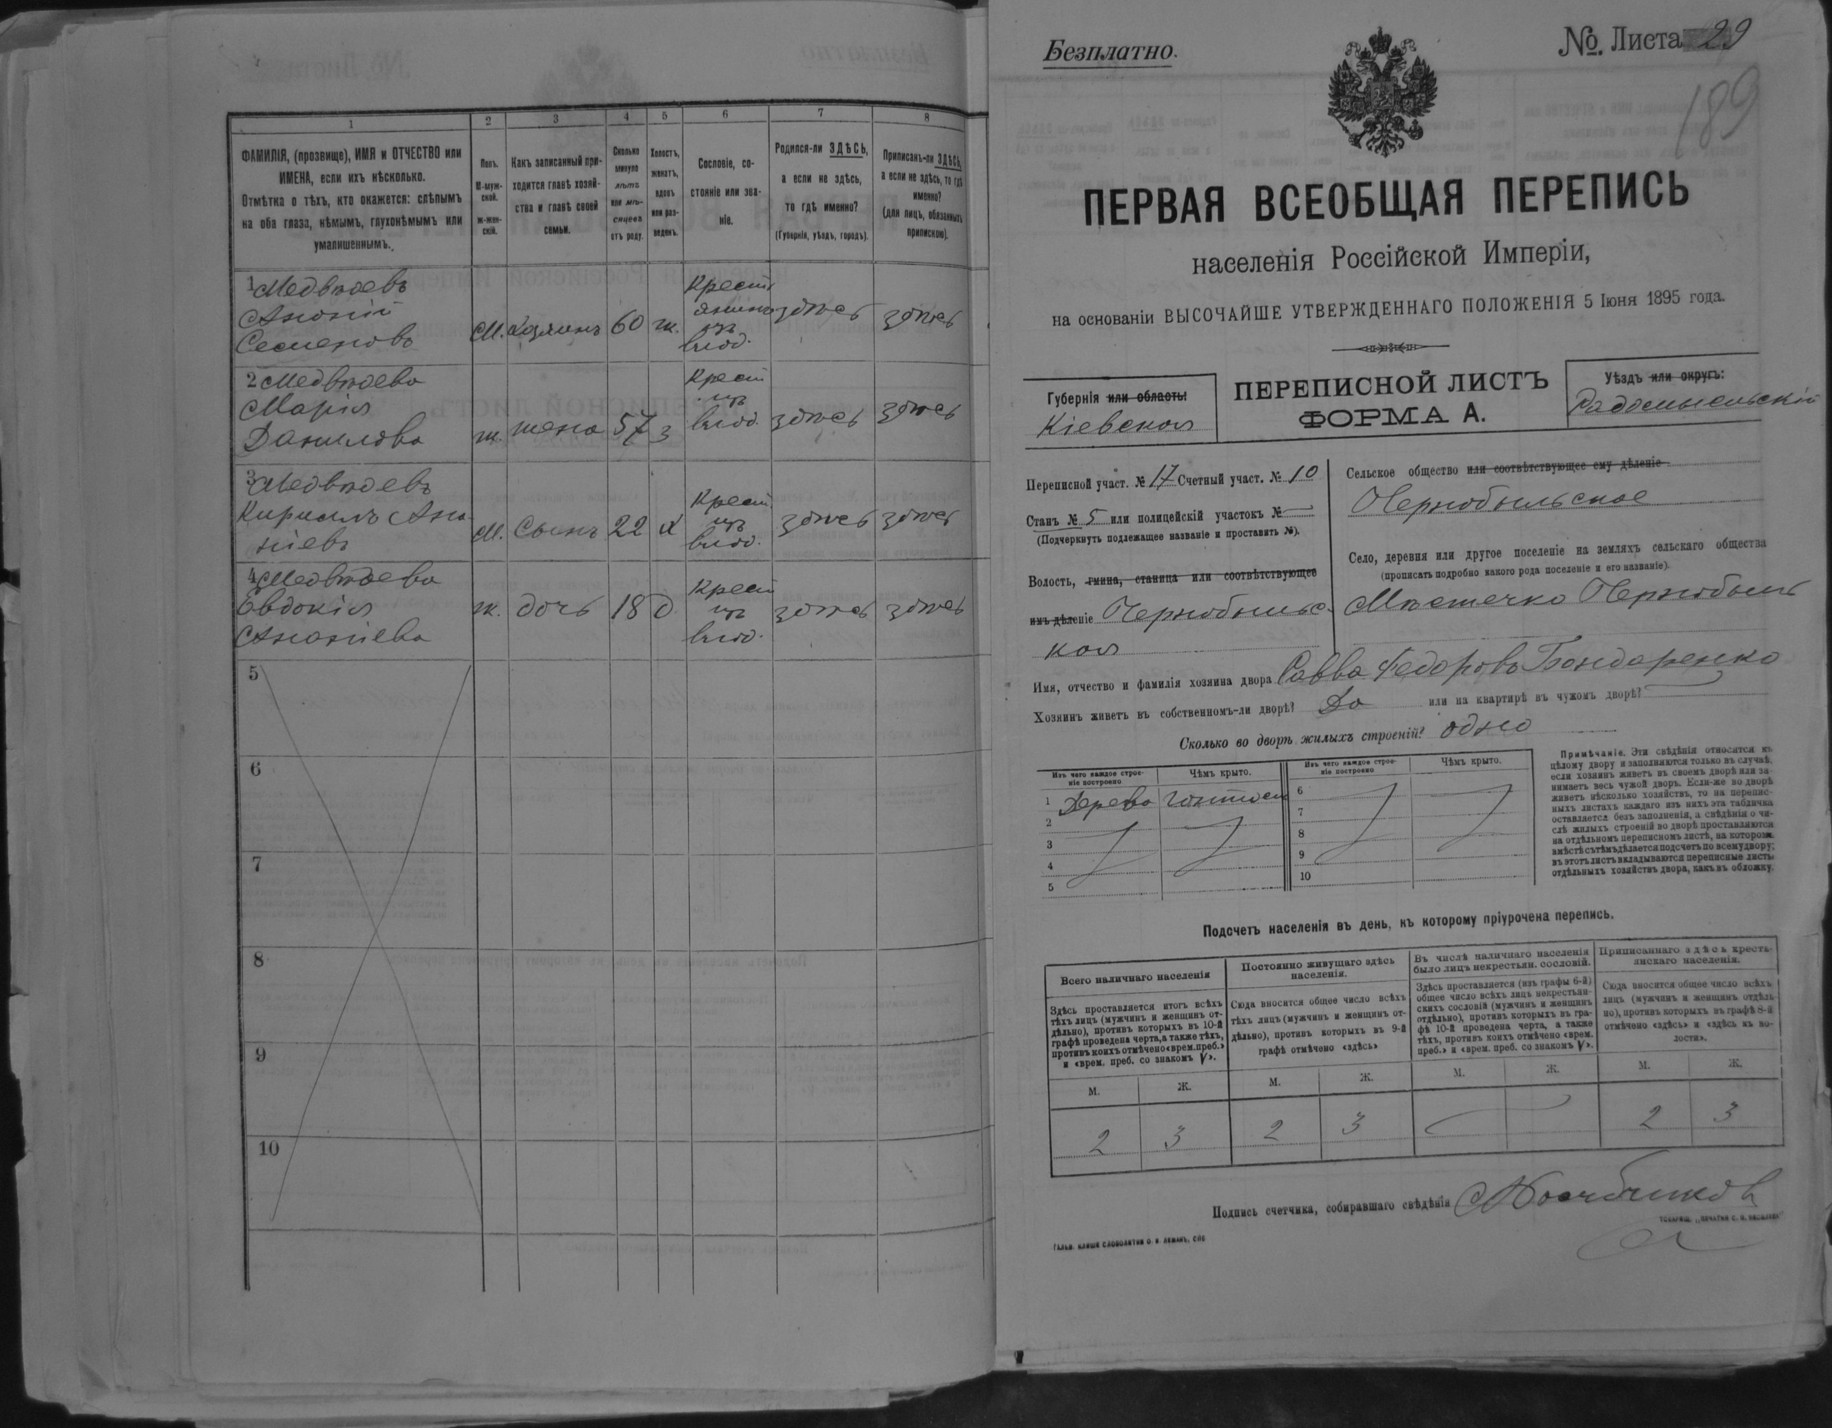 1
2
3
4
5
6
7
8
ФАМИЛІЯ, (прозвище), ИМЯ и ОТЧЕСТВО или
ИМЕНА, если ихъ нѣсколько.
Отмѣтка о тѣхъ, кто окажется: слѣпымъ
на оба глаза, нѣмымъ, глухонѣмымъ или
умалишеннымъ.
Полъ.
М-муж-
ской.
ж-жен-
скій.
Какъ записанный при-
ходится главѣ хозяй-
ства и главѣ своей
семьи.
Сколько
минуло
лѣтъ
или мѣ-
сяцевъ
отъ роду.
Холостъ,
женатъ,
вдовъ
или раз-
веденъ.
Сословіе, со-
стояніе или зва-
ніе.
Родился-ли ЗДѢСЬ,
а если не здѣсь,
то гдѣ именно?
(Губернія, уѣздъ, городъ).
Приписанъ-ли ЗДѢСЬ,
а если не здѣсь, то гдѣ
именно?
(для лицъ, обязанныхъ
припискою).
1 Медвѣдевъ
Ананій
Семеновъ
М. Хозяинъ 60 ж.
Крестьянинъ
изъ
влад.
здѣсь здѣсь
2 Медвѣдева
Марія
Данилова
ж. жена 57 з
Крест
изъ
влад.
здѣсь здѣсь
3 Медвѣдевъ
Кирилъ Ана-
ніевъ
М. Сынъ 22 х
Крест
изъ
влад.
здѣсь здѣсь
4 Медвѣдева
Евдокія
Ананіева
ж. дочь 18 д
Крест
изъ
влад.
здѣсь здѣсь
5
6
7
8
9
10
Безплатно.
№ Листа 29
189
ПЕРВАЯ ВСЕОБЩАЯ ПЕРЕПИСЬ
населенія Россійской Имперіи,
на основаніи ВЫСОЧАЙШЕ УТВЕРЖДЕННАГО ПОЛОЖЕНІЯ 5 Іюня 1895 года.
Губернія или область:
Кіевская
ПЕРЕПИСНОЙ ЛИСТЪ
ФОРМА А.
Уѣздъ или округъ:
Радомысльскій
Переписной участ. № 17 Счетный участ. № 10
Станъ № 5 или полицейскій участокъ №
(Подчеркнуть подлежащее названіе и проставить №).
Волость, гмина, станица или соотвѣтствующее
имъ дѣленіе Чернобыльс-
кая
Сельское общество или соотвѣтствующее ему дѣленіе
Чернобыльское
Село, деревня или другое поселеніе на земляхъ сельскаго общества
(прописать подробно какого рода поселеніе и его названіе).
Мѣстечко Чернобыль
Имя, отчество и фамилія хозяина двора Савва Федоровъ Бондаренко
Хозяинъ живетъ въ собственномъ-ли дворѣ? Да или на квартирѣ въ чужомъ дворѣ?
Сколько во дворѣ жилыхъ строеній? одно
Изъ чего каждое строе-
ніе построено
Чѣмъ крыто.
Изъ чего каждое строе-
ніе построено
Чѣмъ крыто.
1 Дерева гонтою
2
3
4
5
6
7
8
9
10
Примѣчаніе. Эти свѣдѣнія относятся къ
цѣлому двору и заполняются только въ случаѣ,
если хозяинъ живетъ въ своемъ дворѣ или за-
нимаетъ весь чужой дворъ. Если-же во дворѣ
живетъ нѣсколько хозяйствъ, то на перепис-
ныхъ листахъ каждаго изъ нихъ эта табличка
оставляется безъ заполненія, а свѣдѣнія о чи-
слѣ жилыхъ строеній во дворѣ проставляются
на отдѣльномъ переписномъ листѣ, на которомъ
вмѣстѣ съ тѣмъ дѣлается подсчетъ по всему двору;
въ этотъ листъ вкладываются переписные листы
отдѣльныхъ хозяйствъ двора, какъ въ обложку.
Подсчетъ населенія въ день, къ которому пріурочена перепись.
Всего наличнаго населенія
Здѣсь проставляется итогъ всѣхъ
тѣхъ лицъ (мужчинъ и женщинъ от-
дѣльно), противъ которыхъ въ 10-й
графѣ проведена черта, а также тѣхъ,
противъ коихъ отмѣчено «врем. преб.»
и «врем. преб. со знакомъ V».
Постоянно живущаго здѣсь
населенія.
Сюда вносится общее число всѣхъ
тѣхъ лицъ (мужчинъ и женщинъ от-
дѣльно), противъ которыхъ въ 9-й
графѣ отмѣчено «здѣсь»
Въ числѣ наличнаго населенія
было лицъ некрестьян. сословій.
Здѣсь проставляется (изъ графы 6-й)
общее число всѣхъ лицъ некрестьян-
скихъ сословій (мужчинъ и женщинъ
отдѣльно), противъ которыхъ въ гра-
фѣ 10-й проведена черта, а также
тѣхъ, противъ коихъ отмѣчено «врем.
преб.» и «врем. преб. со знакомъ V».
Приписаннаго здѣсь кресть-
янскаго населенія.
Сюда вносится общее число всѣхъ
лицъ (мужчинъ и женщинъ отдѣль-
но), противъ которыхъ въ графѣ 8-й
отмѣчено «здѣсь» и «здѣсь въ во-
лости».
М. Ж. М. Ж. М. Ж. М. Ж.
2 3 2 3 2 3
Подпись счетчика, собиравшаго свѣдѣнія